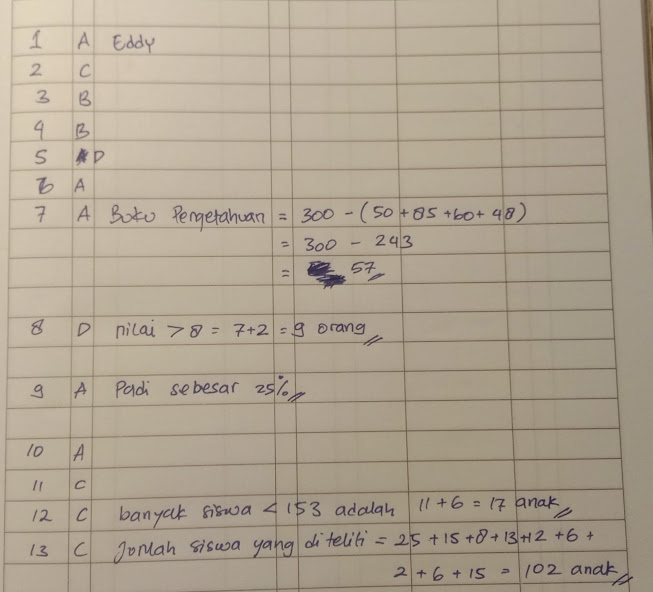 1 A Eddy
2 C
3 B
4 B
5 D
6 A
7 A Buku Pengetahuan = 300 - (50 + 85 + 60 + 48)
= 300 - 243
= 57
8 D nilai > 8 = 7+2 = 9 orang
9 A Padi sebesar 25%
10 A
11 C
12 C banyak siswa < 153 adalah 11 + 6 = 17 anak
13 C Jumlah siswa yang diteliti = 25 + 15 + 8 + 13 + 12 + 6 +
2 + 6 + 15 = 102 anak